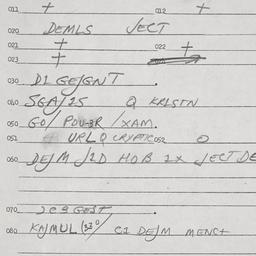 011 + 012 +
020 DEMLS JECT
021 + 022 +
023 +
030 D1 GEJGNT .
040 SGAJ2S Q KRLSTN
050 GO/ POU-3R /XAM.
051 URLQ CRYPTIC 052 O
060 DEJM J1D HOB 1X JECT DE
070 2C9 GEST.
080 KNJMUL C1 DEJM MENS+